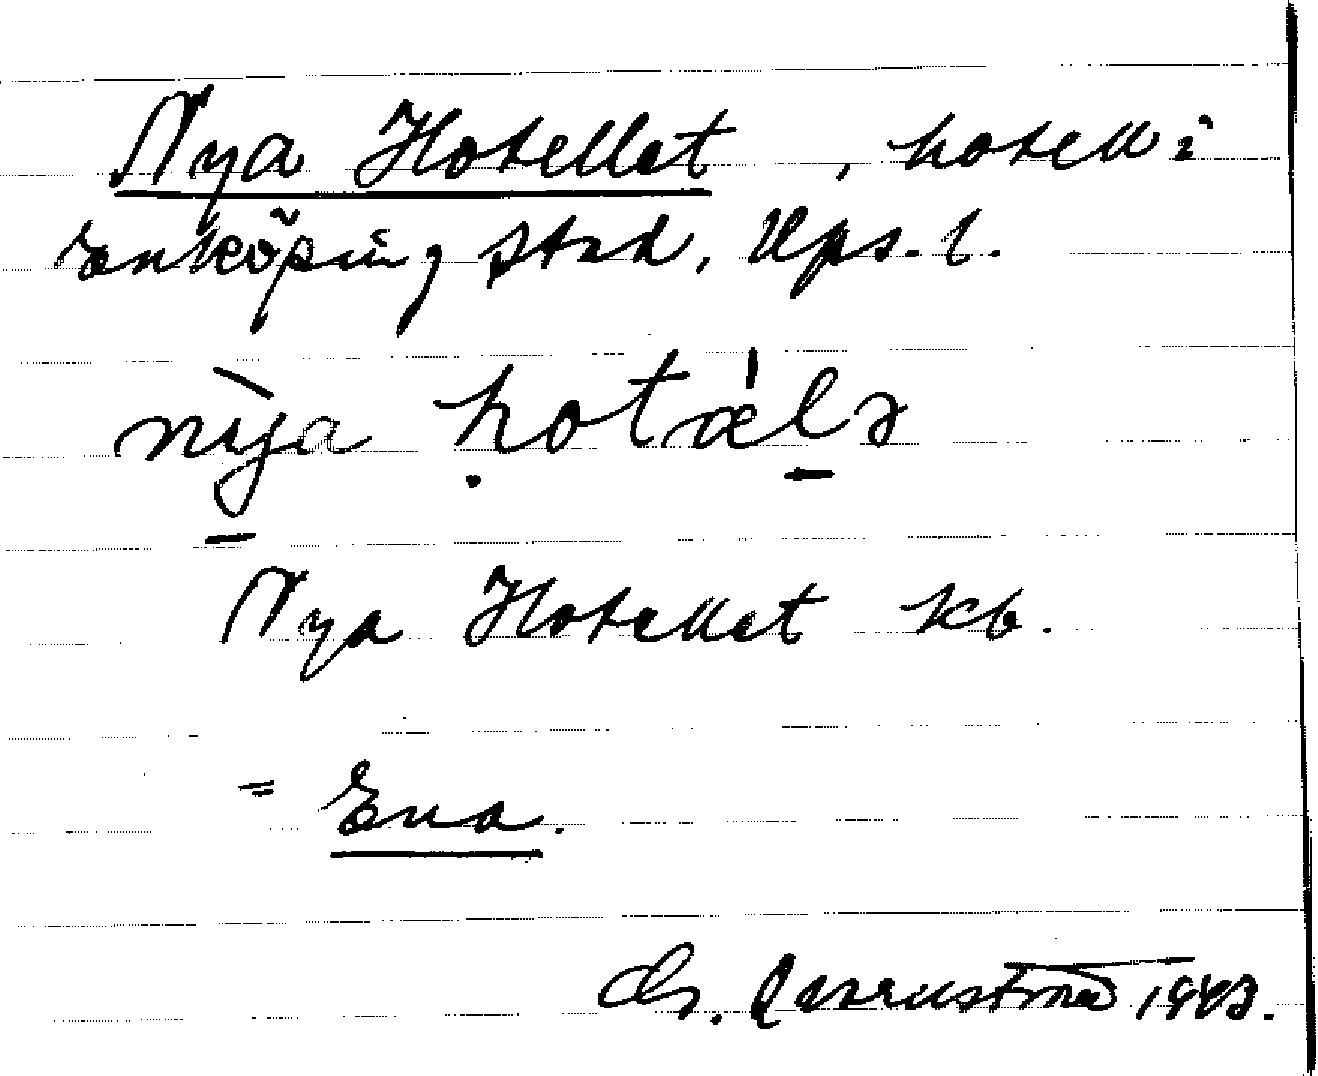 Nya Hotellet, hotell i
Enköping stad, Ups. l.
nỳja hotǽlə
Nya Hotellet kb.
= Ena.
Ch. 1943.